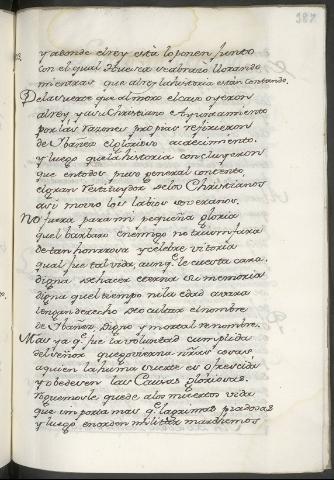 387
y adonde el rey està lo ponen junto
con el qual Teuesca se abrazò llorando
mientras que al rey la historia estàn contando.
De la suerte que al moro el caso oyeron
al rey y a su Christiano Ayuntamiento
por las razones proprias refirieron
de Ibañez el glorioso acaecimiento.
y luego qe la historia concluyeron
que en todos puso general contento,
el gran Vestiuydor de los Christianos
assi mouio los labios soueranos.
No fuera para mi pequeña gloria
quel barbaro enemigo no triumfara
de tan honrrosa y celebre vitoria
qual fue tal vida, aunqe. le cuesta cara.
digna de hacer eterna su memoria
digna quel tiempo ni la edad auara
tengan derecho de ocultar el nombre
de Ibañez, digno y mortal renombre.
Mas ya q. fue la voluntad cumplida
del señor que gouierna nras cosas
a quien la humana suerte es ofrescida
y obedecen las Causas gloriosas.
roguemosle quede a los muertos vida
que importa mas q. lagrimas piadosas
y luego en orden militar marchemos